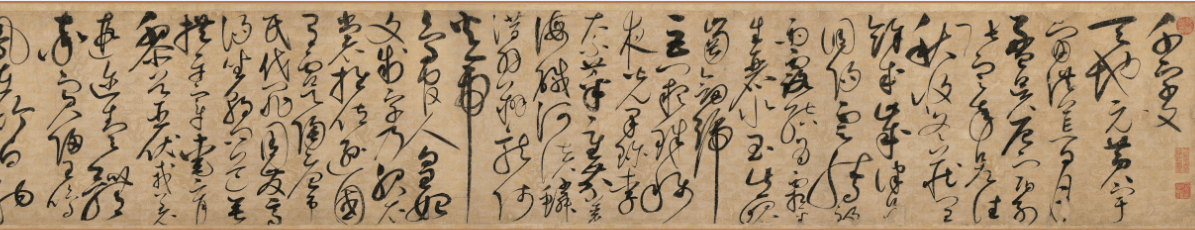 千字文
天地元黃宇
宙洪荒日月
盈昃辰宿列張
寒來暑往
秋收冬藏閏
餘成歲律呂
調陽雲騰致
雨露結為霜金
生麗水玉出崑
崗劍號
巨闕珠稱
夜光果珍李
柰菜重芥薑
海鹹河淡鱗
潛羽翔龍師
火帝
鳥官人皇始
制文字乃服衣
裳推位遜國
有虞陶唐弔
民伐罪周發商
湯坐朝問道垂
拱平章愛育
黎首臣伏戎羌
遐邇壹體
率賓歸王鳴
鳳在竹白駒